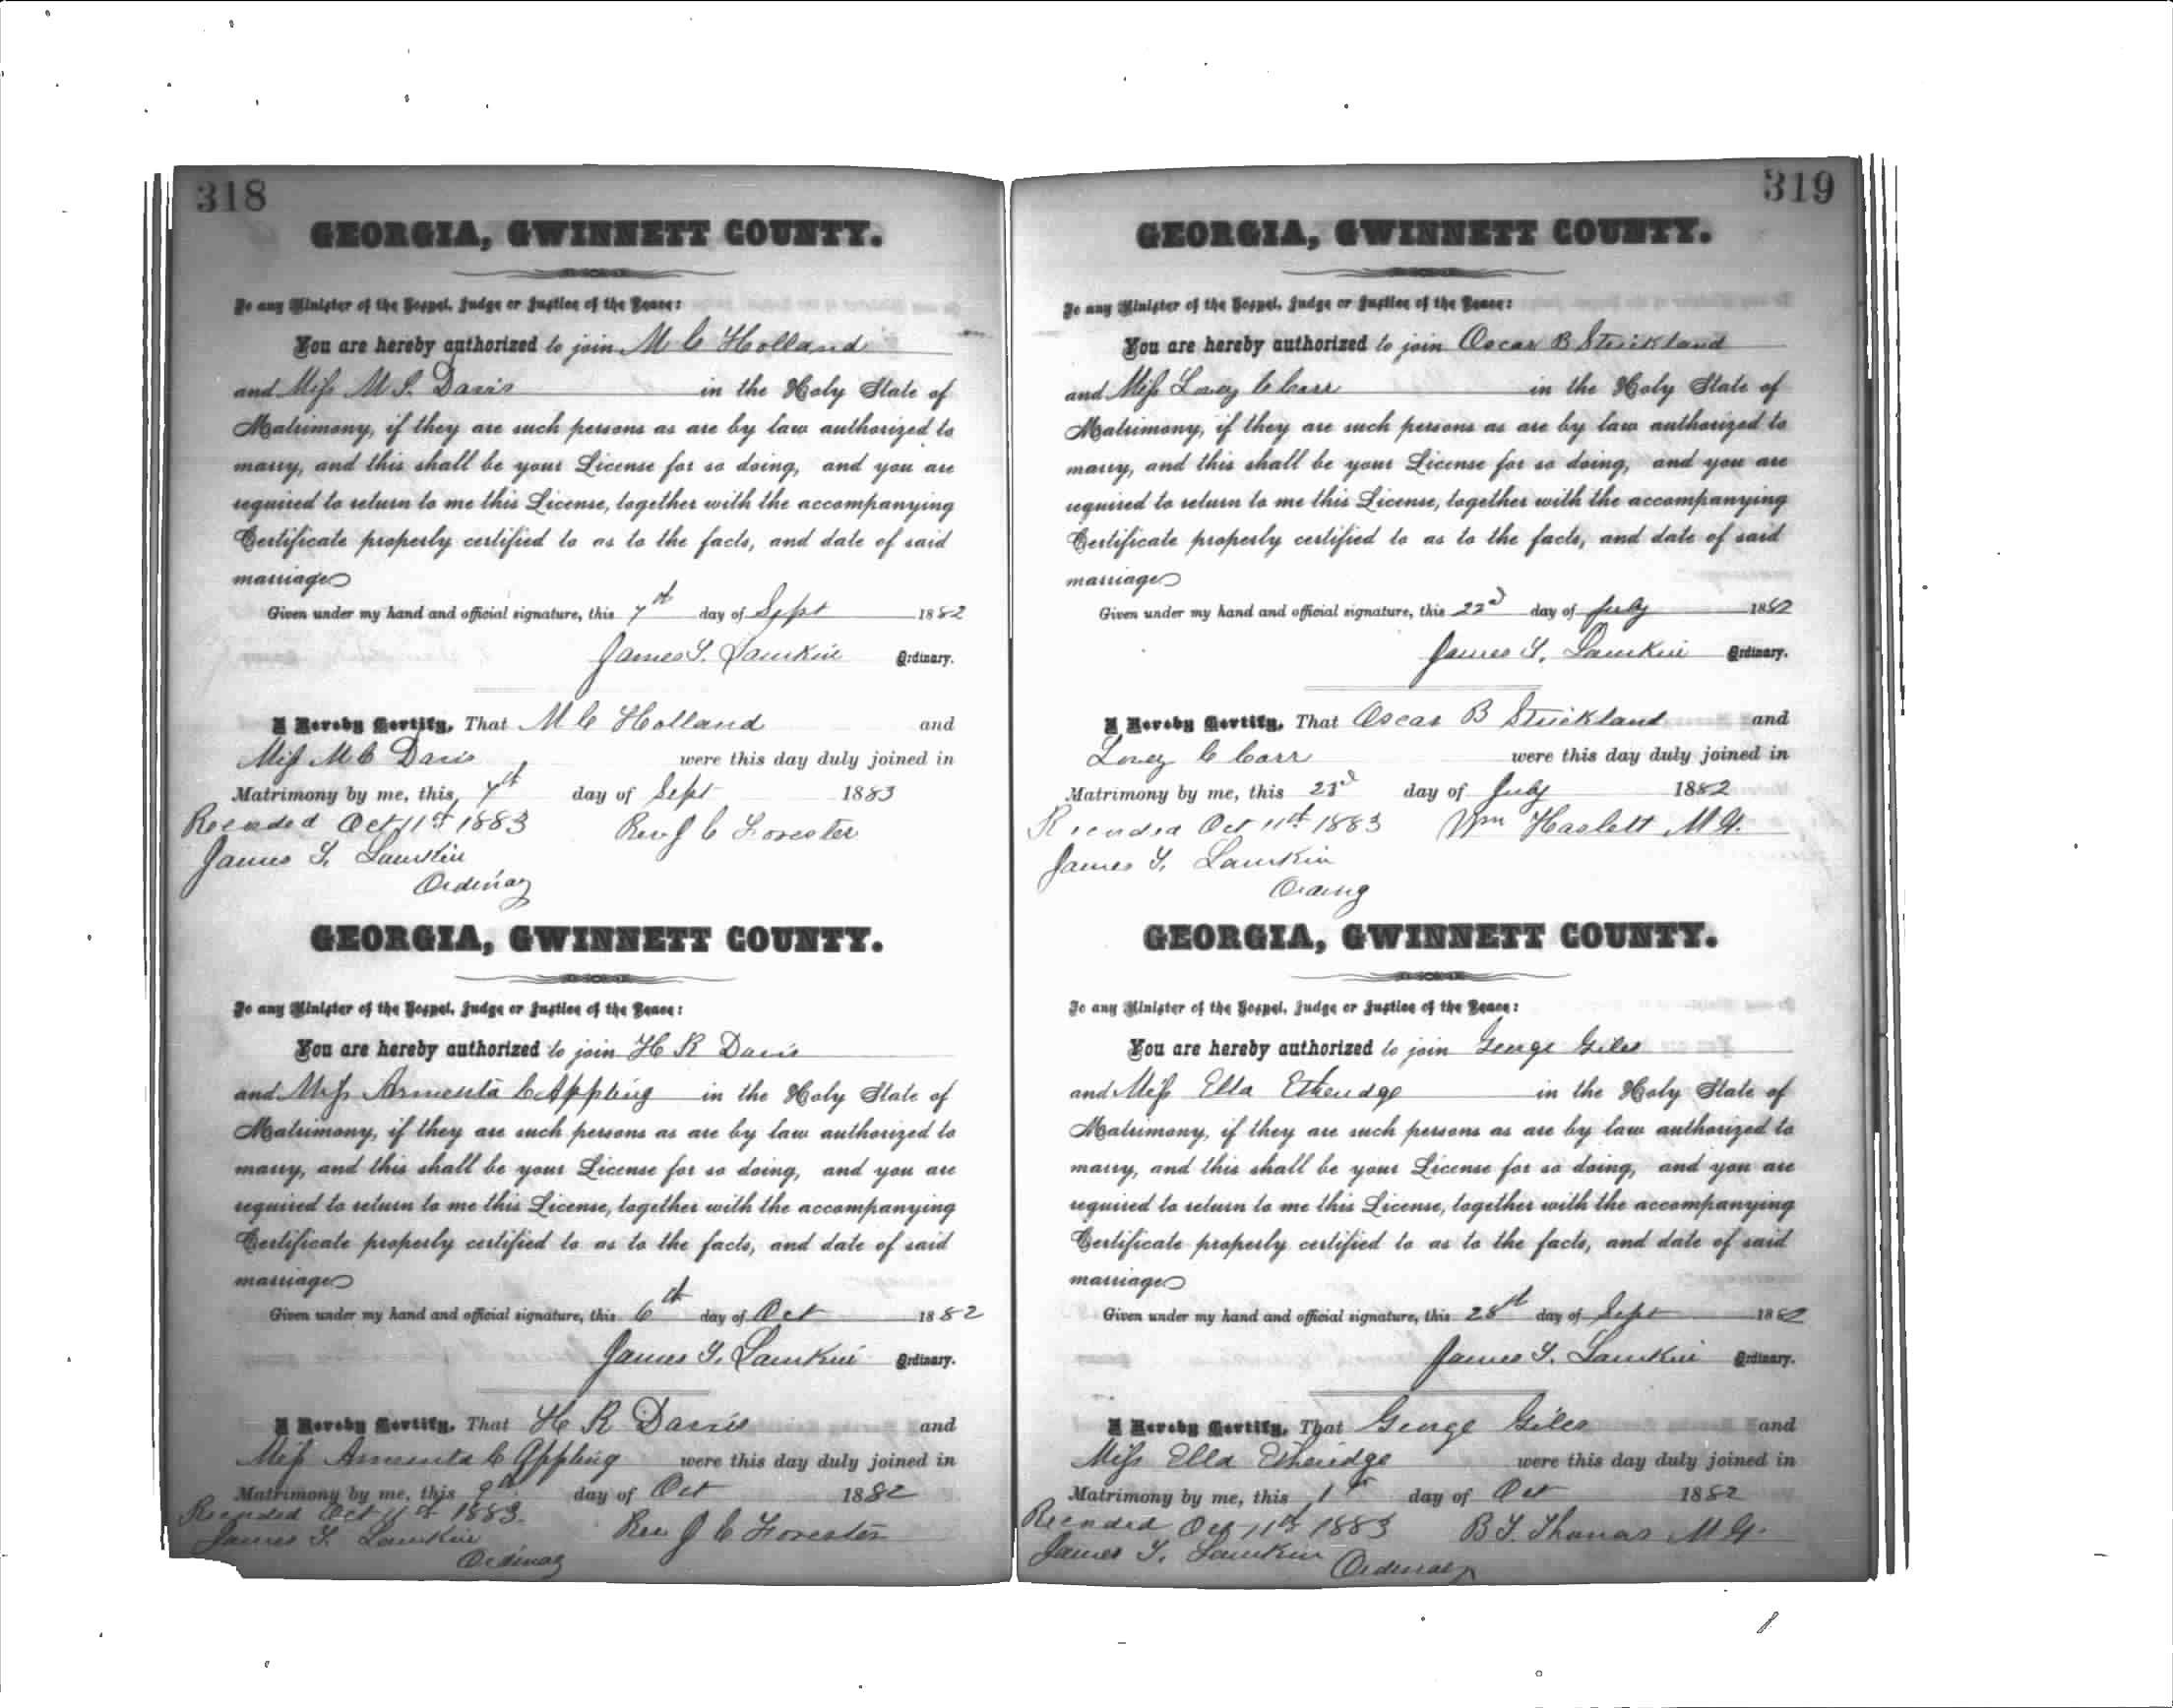 318
GEORGIA, GWINNETT COUNTY.
To any Minister of the Gospel, Judge or Justice of the Peace:
You are hereby authorized to join M C Holland
and Miss M S. Davis in the Holy State of
Matrimony, if they are such persons as are by law authorized to
marry, and this shall be your License for so doing, and you are
required to return to me this License, together with the accompanying
Certificate properly certified to as to the facts, and date of said
marriage
Given under my hand and official signature, this 7th day of Sept 1882
James T. Lamkin Ordinary.
I Hereby Certify, That M C Holland and
Miss M C Davis were this day duly joined in
Matrimony by me, this 7th day of Sept 1883
Recorded Oct 11th 1883 Rev J C Forester
James T. Lamkin
Ordinary
GEORGIA, GWINNETT COUNTY.
To any Minister of the Gospel, Judge or Justice of the Peace:
You are hereby authorized to join H R Davis
and Miss Armenta C Appling in the Holy State of
Matrimony, if they are such persons as are by law authorized to
marry, and this shall be your License for so doing, and you are
required to return to me this License, together with the accompanying
Certificate properly certified to as to the facts, and date of said
marriage
Given under my hand and official signature, this 6th day of Oct 1882
James T. Lamkin Ordinary.
I Hereby Certify, That H R Davis and
Miss Armenta C Appling were this day duly joined in
Matrimony by me, this 9th day of Oct 1882
Recorded Oct 11th 1883. Rev J C Forester
James T. Lamkin
Ordinary
319
GEORGIA, GWINNETT COUNTY.
To any Minister of the Gospel, Judge or Justice of the Peace:
You are hereby authorized to join Oscar B Strickland
and Miss Lovey C Carr in the Holy State of
Matrimony, if they are such persons as are by law authorized to
marry, and this shall be your License for so doing, and you are
required to return to me this License, together with the accompanying
Certificate properly certified to as to the facts, and date of said
marriage
Given under my hand and official signature, this 22d day of July 1882
James T. Lamkin Ordinary.
I Hereby Certify, That Oscar B Strickland and
Lovey C Carr were this day duly joined in
Matrimony by me, this 23d day of July 1882
Recorded Oct 11th 1883 Wm Haslett M G.
James T. Lamkin
Ordinary
GEORGIA, GWINNETT COUNTY.
To any Minister of the Gospel, Judge or Justice of the Peace:
You are hereby authorized to join George Giles
and Miss Ella Etheridge in the Holy State of
Matrimony, if they are such persons as are by law authorized to
marry, and this shall be your License for so doing, and you are
required to return to me this License, together with the accompanying
Certificate properly certified to as to the facts, and date of said
marriage
Given under my hand and official signature, this 28th day of Sept 1882
James T. Lamkin Ordinary.
I Hereby Certify, That George Giles and
Miss Ella Etheridge were this day duly joined in
Matrimony by me, this 1st day of Oct 1882
Recorded Oct 11th 1883 B T. Thomas M G.
James T. Lamkin Ordinary